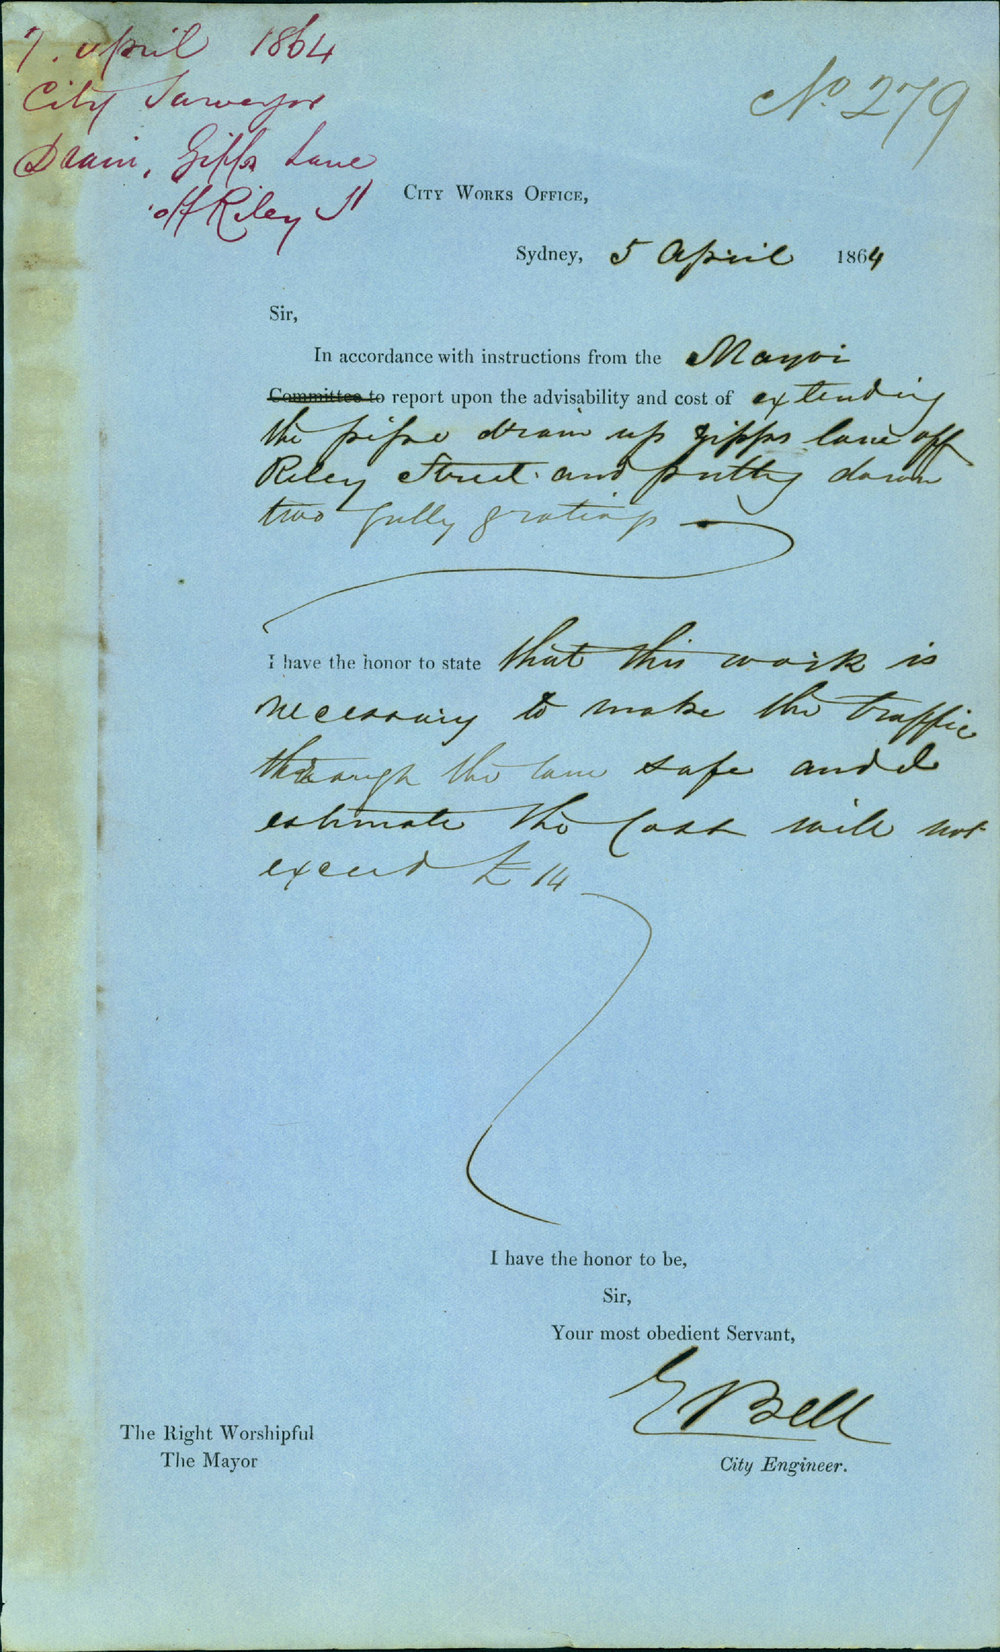 7. April 1864
City Surveyor
Drain, Gipps Lane
off Riley St
No. 279
City Works Office,
Sydney, 5 April 1864
Sir,
In accordance with instructions from the Mayor
Committee to report upon the advisability and cost of extending
the pipe drain up gipps lane off
Riley Street and putting down
two gully gratings
I have the honor to state that this work is
necessary to make the traffic
through the lane safe and I
estimate the Cost will not
exceed £14
I have the honor to be,
Sir,
Your most obedient Servant,
E Bell
City Engineer.
The Right Worshipful
The Mayor